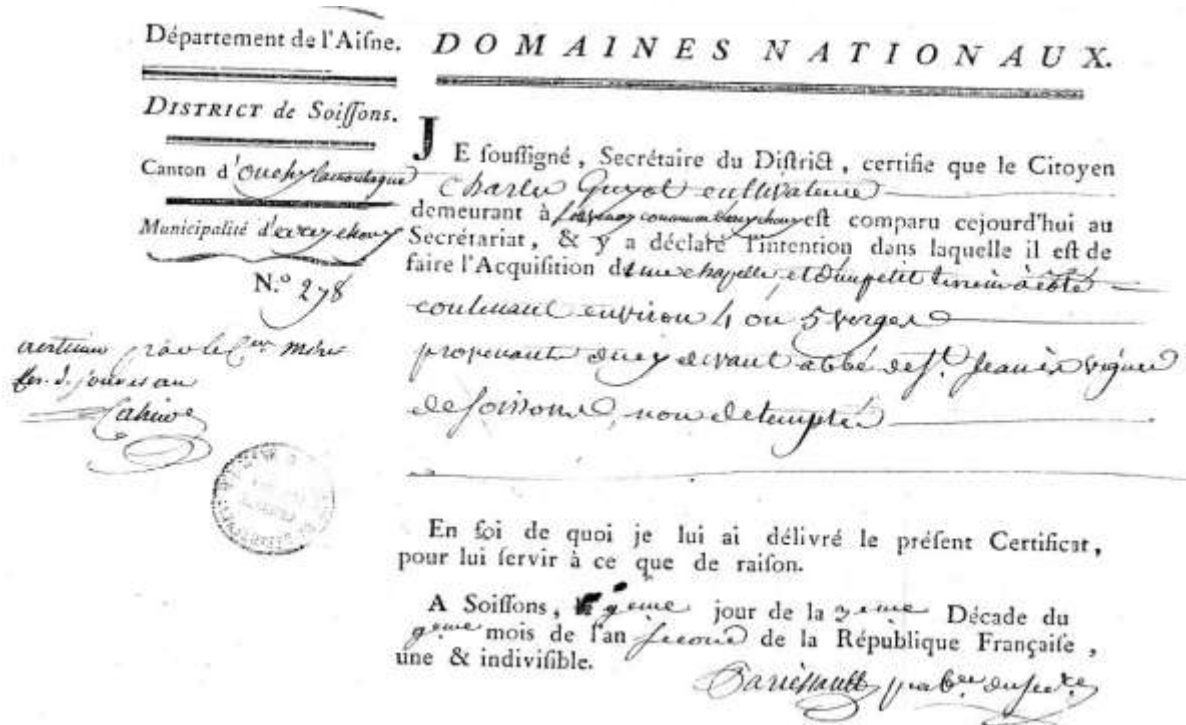 Département de l'Aiſne.
DISTRICT de Soiſſons.
Canton d'ouchy lamontagne
Municipalité d'
N.° 278
DOMAINES NATIONAUX.
JE ſouſſigné, Secrétaire du Diſtrict, certifie que le Citoyen
Charles Guyot cultivateur
demeurant à commune eſt comparu cejourd'hui au
Secrétariat, & y a déclaré l'intention dans laquelle il eſt de
faire l'Acquiſition d'une chapelle et d'un petit terrein à côté
contenant environ 4 ou 5 verges
provenant du cy devant abbé de St. Jean ès vignes
de soissons, non
En foi de quoi je lui ai délivré le préſent Certificat,
pour lui ſervir à ce que de raiſon.
A Soiſſons, le jour de la Décade du
mois de l'an second de la République Françaiſe,
une & indiviſible.